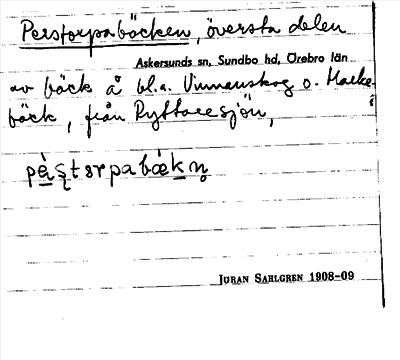 Perstorpabäcken, översta delen
Askersunds sn, Sundbo hd, Örebro län
av bäck å bl.a. Vinnanskog o. Marke-
bäck, från Ryttaresjön,
JÖRAN SAHLGREN 1908-09